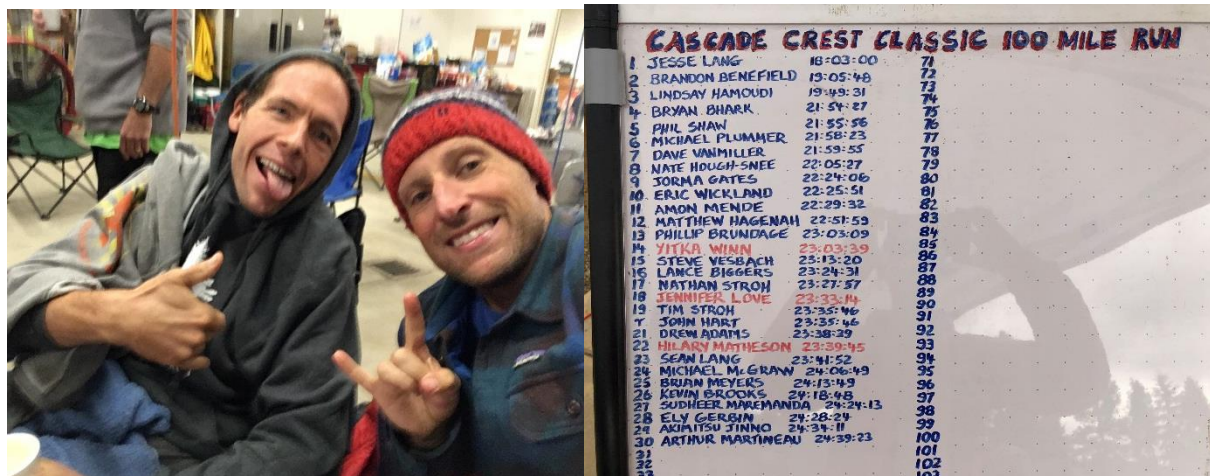 CASCADE CREST CLASSIC 100 MILE RUN
1 JESSE LANG 18:03:00
2 BRANDON BENEFIELD 19:05:48
3 LINDSAY HAMOUDI 19:49:31
4 BRYAN BHARK 21:54:27
5 PHIL SHAW 21:55:56
6 MICHAEL PLUMMER 21:58:23
7 DAVE VANMILLER 21:59:55
8 NATE HOUGH-SNEE 22:05:27
9 JORMA GATES 22:24:06
10 ERIC WICKLAND 22:25:51
11 AMON MENDE 22:29:32
12 MATTHEW HAGENAH 22:51:59
13 PHILLIP BRUNDAGE 23:03:09
14 YITKA WINN 23:03:39
15 STEVE VESBACH 23:13:20
16 LANCE BIGGERS 23:24:31
17 NATHAN STROH 23:27:57
18 JENNIFER LOVE 23:33:14
19 TIM STROH 23:35:46
T JOHN HART 23:35:46
21 DREW ADAMS 23:38:29
22 HILARY MATHESON 23:39:45
23 SEAN LANG 23:41:52
24 MICHAEL McGRAW 24:06:49
25 BRIAN MEYERS 24:13:49
26 KEVIN BROOKS 24:18:48
27 SUDHEER MAREMANDA 24:24:13
28 ELY GERBIN 24:28:24
29 AKIMITSU JINNO 24:34:11
30 ARTHUR MARTINEAU 24:39:23
31
32
33
71
72
73
74
75
76
77
78
79
80
81
82
83
84
85
86
87
88
89
90
91
92
93
94
95
96
97
98
99
100
101
102
103